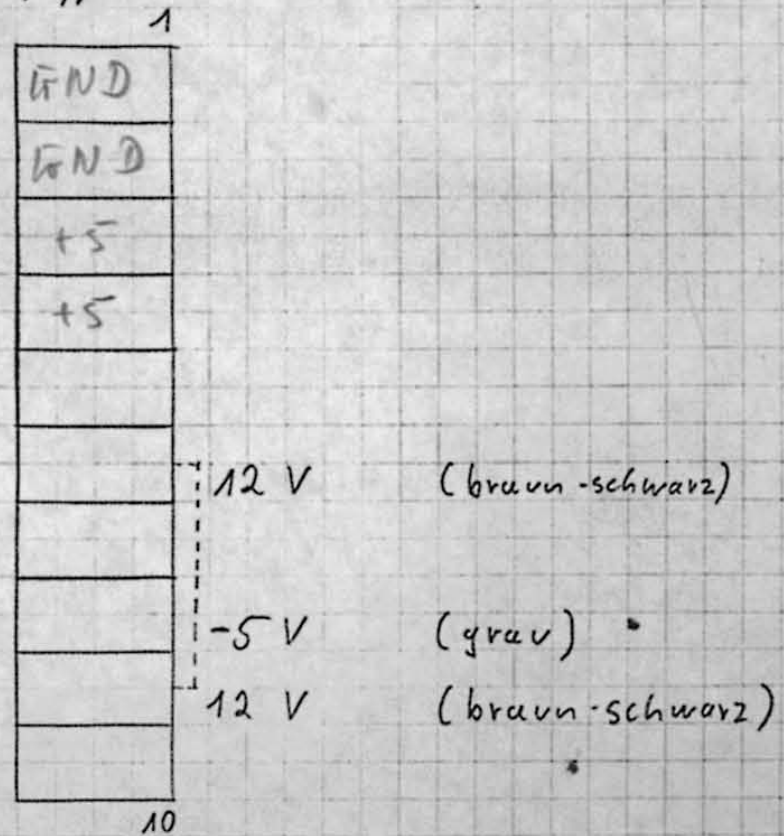 1
GND
GND
+5
+5
12 V (braun-schwarz)
-5 V (grau)
12 V (braun-schwarz)
10